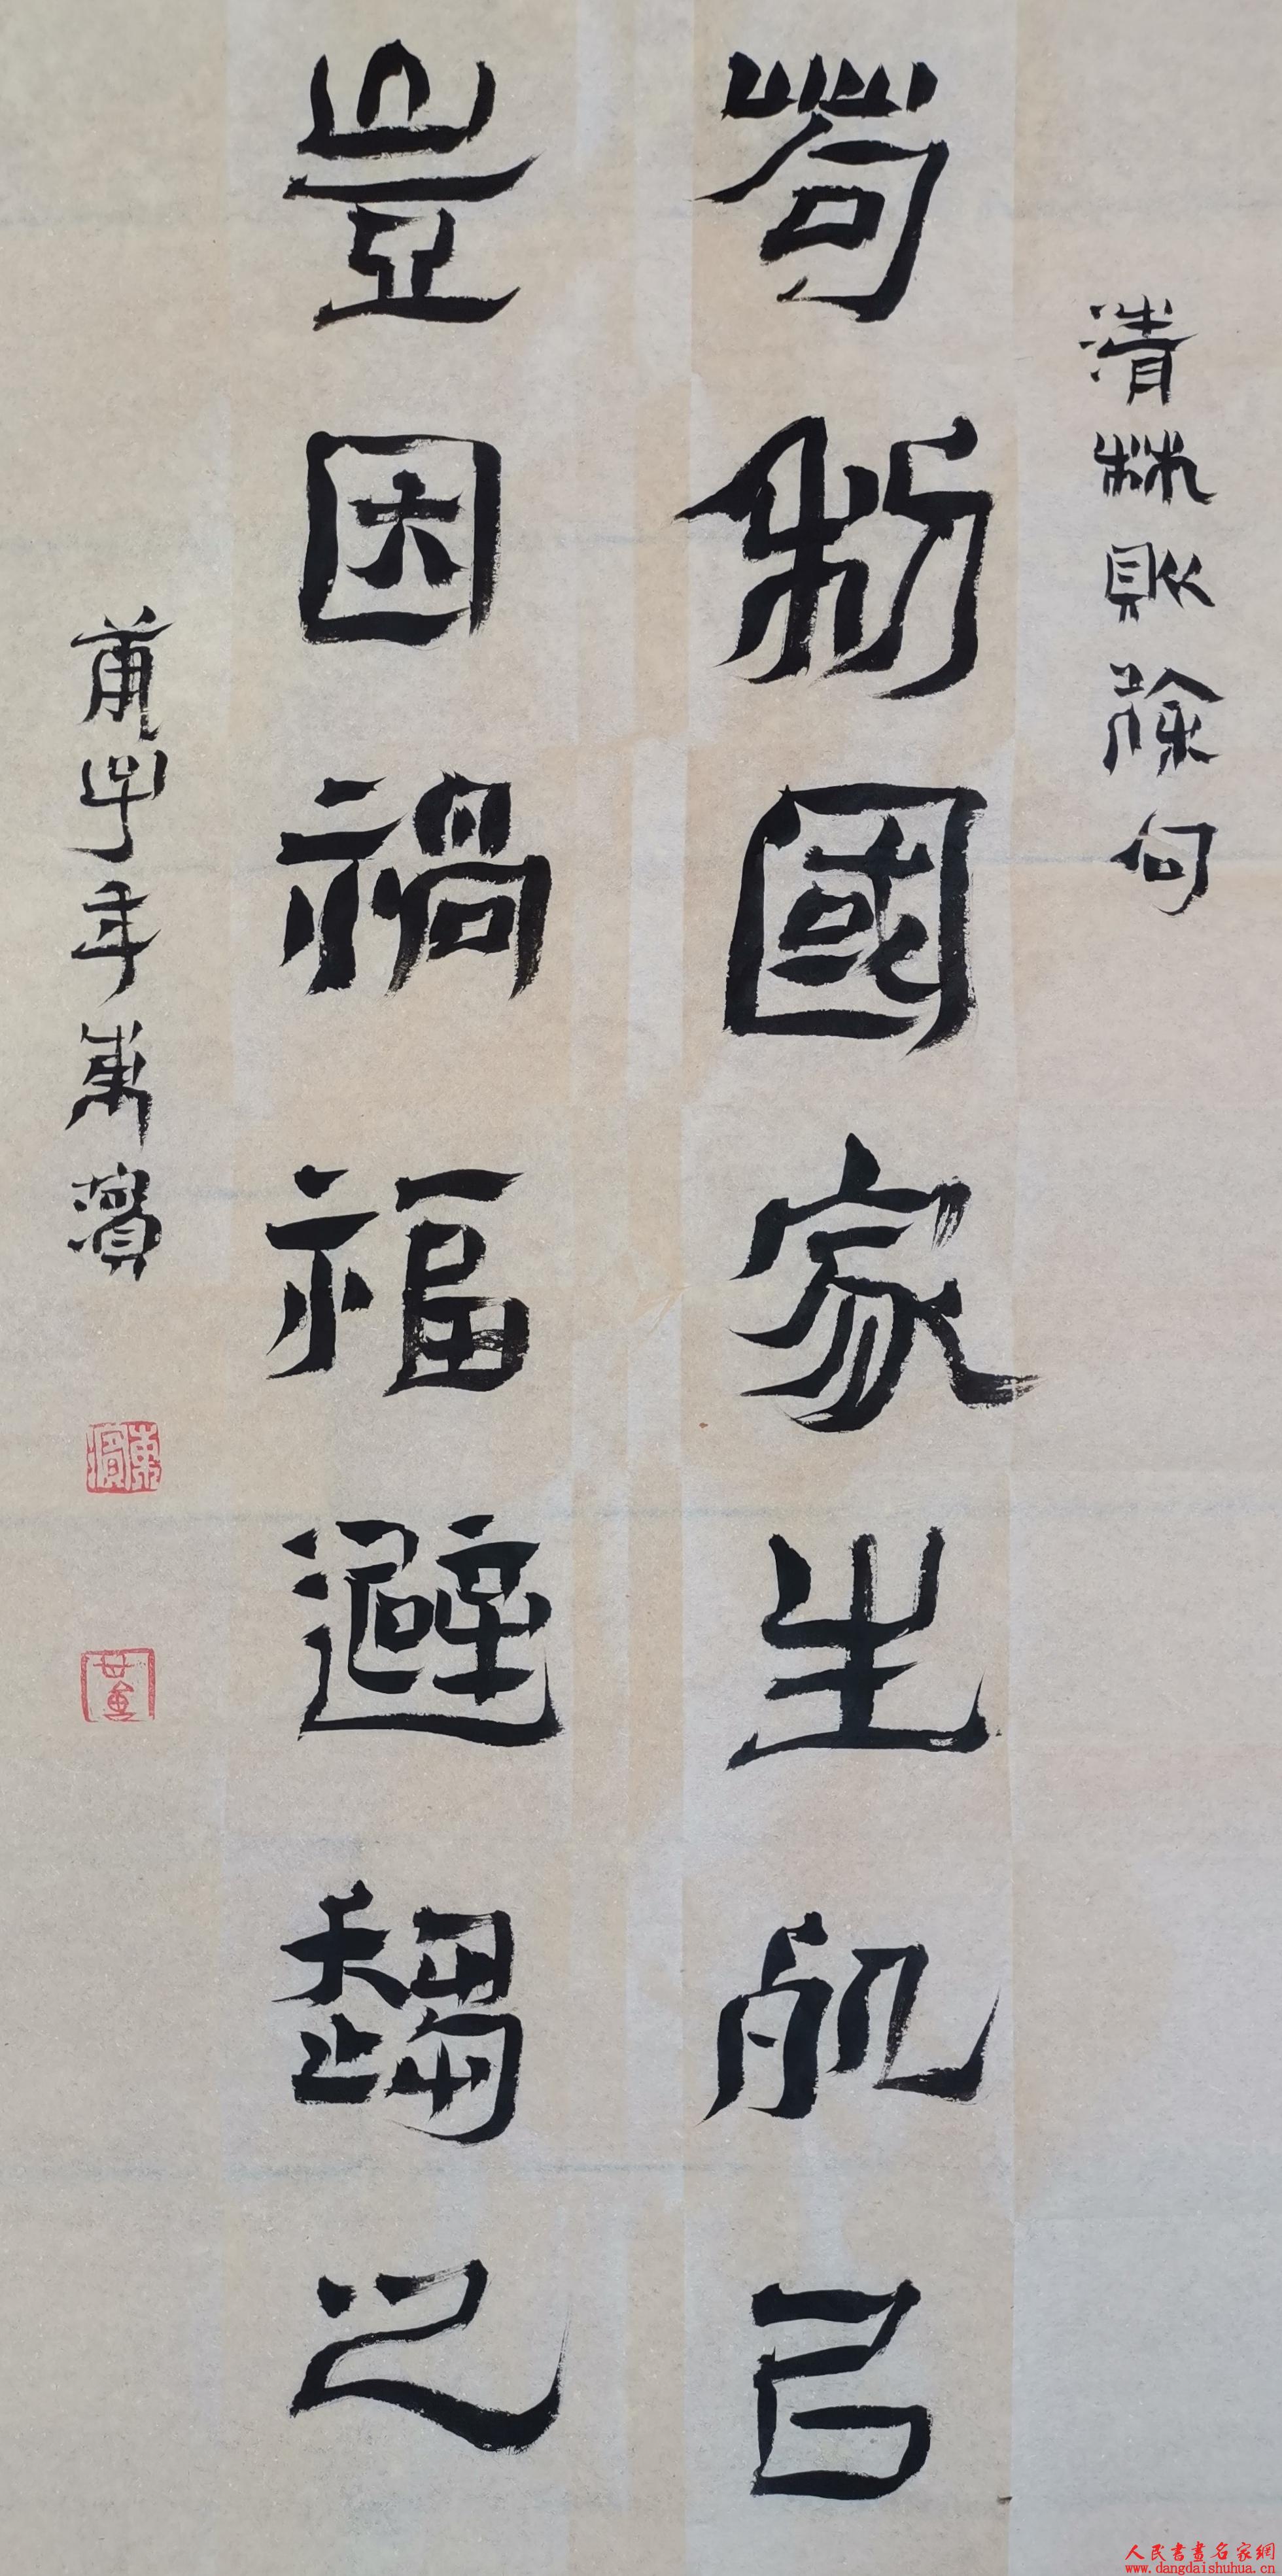 清林則徐句
苟利國家生死以
豈因禍福避趨之
庚子年東濱
東濱
董
人民書畫名家網
www.dangdaishuhua.cn